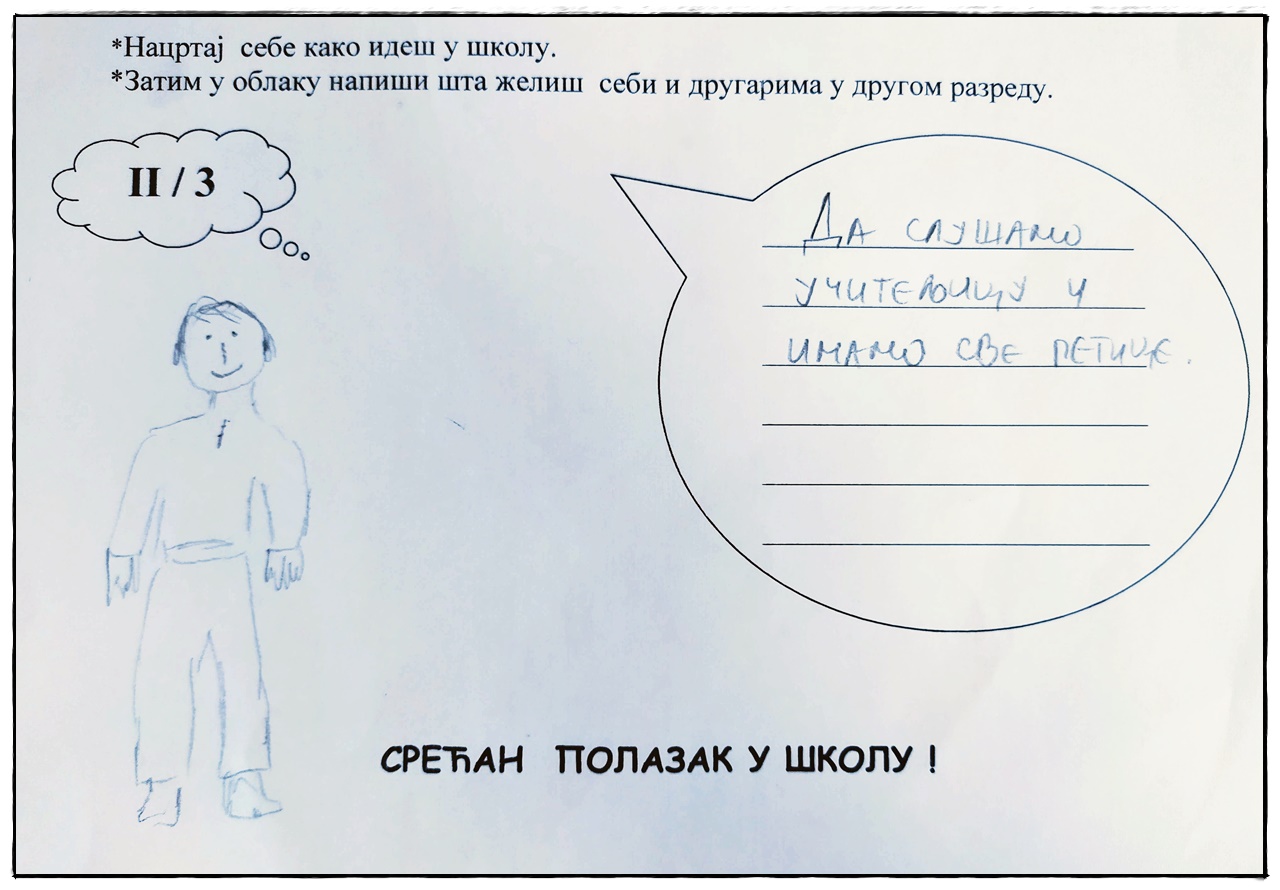 *Нацртај себе како идеш у школу.
*Затим у облаку напиши шта желиш себи и другарима у другом разреду.
II / 3
ДА СЛУШАМО
УЧИТЕЉИЦУ И
ИМАМО СВЕ ПЕТИЦЕ.
СРЕЋАН ПОЛАЗАК У ШКОЛУ !